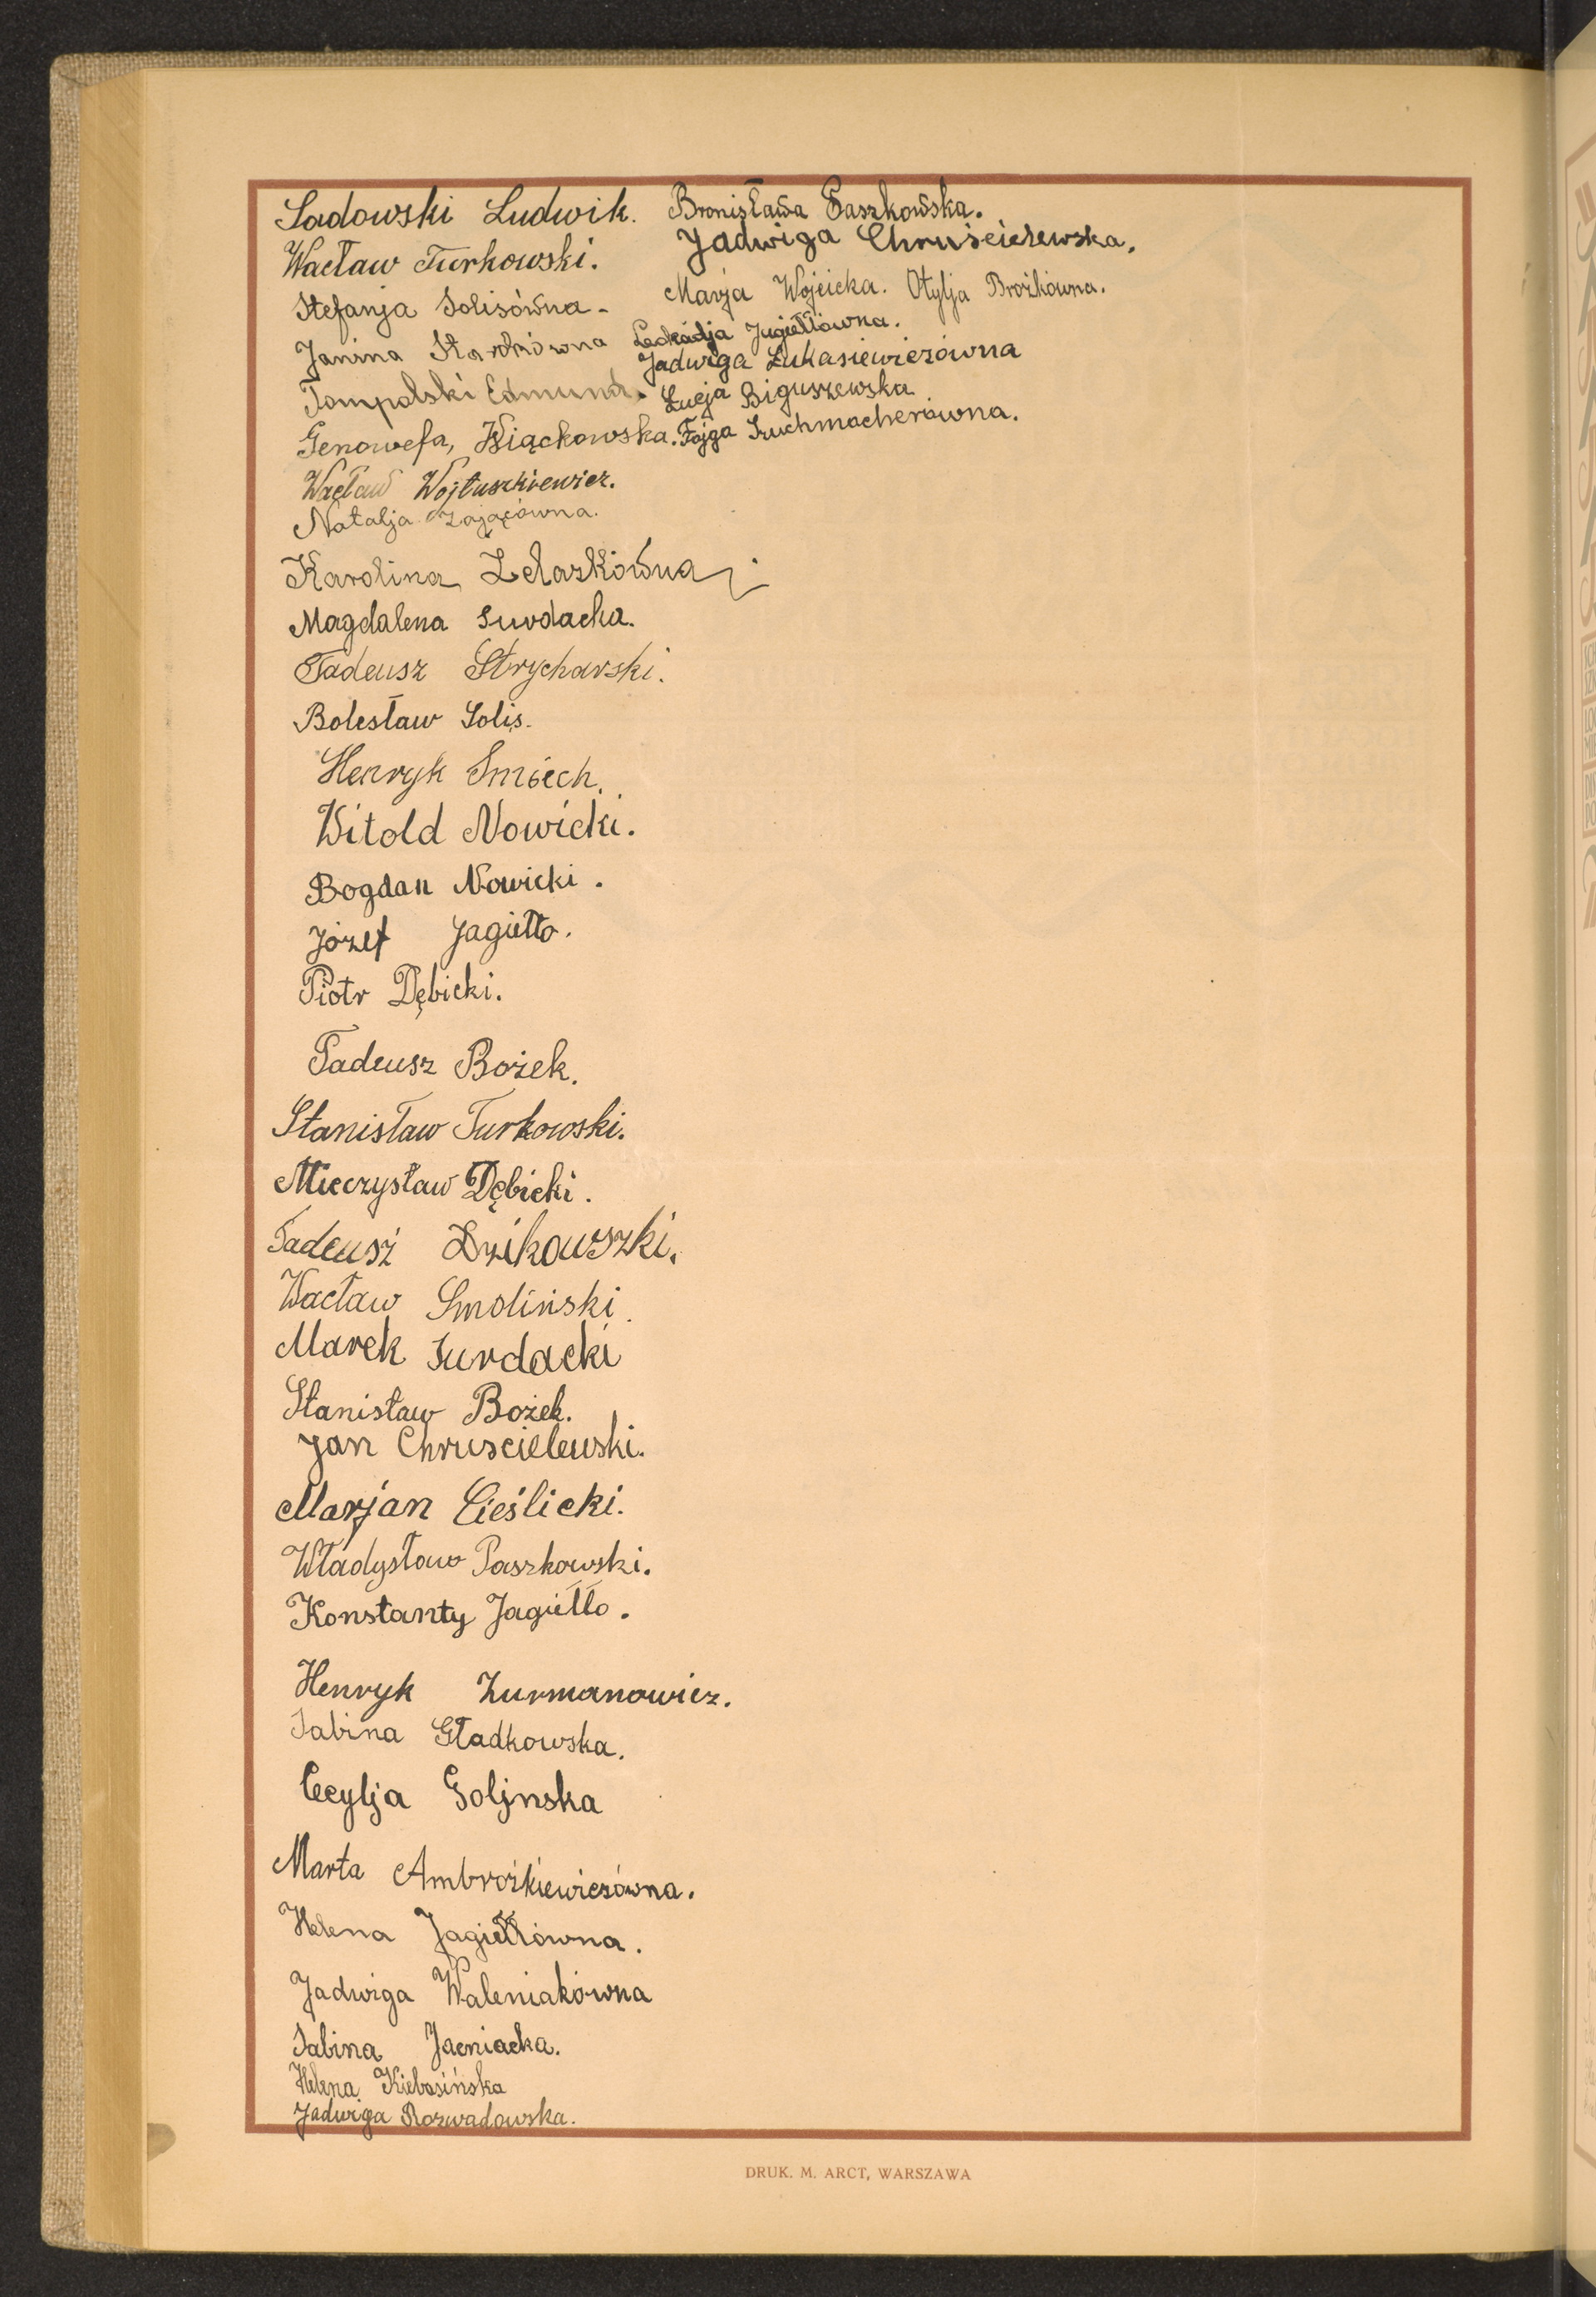 Sadowski Ludwik.
Wacław Turkowski.
Stefanja Solisówna -
Janina
Tompalski Edmund.
Genowefa, Wiąckowska.
Wacław Wojtuszkiewicz.
Natalja Zającówna.
Karolina Żelazkówna
Magdalena Surdacka.
Tadeusz Strycharski.
Bolesław Solis.
Henryk Smiech.
Witold Nowicki.
Bogdan Nowicki.
Józef Jagiełło.
Piotr Dębicki.
Tadeusz Bożek.
Stanisław Turkowski.
Mieczysław Dębicki.
Tadeusz Dzikowszki.
Wacław Smoliński.
Marek Surdacki
Stanisław Bożek.
Jan Chruscielewski.
Marjan Cieślicki.
Władysław Paszkowski.
Konstanty Jagiełło.
Henryk Zurmanowicz.
Sabina Gładkowska.
Cecylja Goljnska
Marta Ambrożkiewiczówna.
Helena Jagiełłówna.
Jadwiga Waleniakówna
Sabina Jacniacka.
Helena Kiełbasińska
Jadwiga Rozwadowska.
Bronisława Paszkowska.
Jadwiga Chruścielewska.
Marja Wojcicka. Otylja Brożkówna.
Leokadja Jagiełłówna.
Jadwiga Łukasiewiczówna
Łucja Biguszewska
Fajga Szuchmacherówna.
DRUK. M. ARCT, WARSZAWA